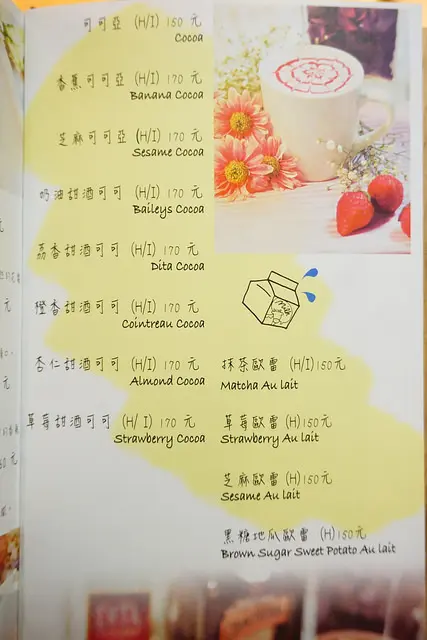 可可亞 (H/I) 150 元
Cocoa
香蕉可可亞 (H/I) 170 元
Banana Cocoa
芝麻可可亞 (H/I) 170 元
Sesame Cocoa
奶油甜酒可可 (H/I) 170 元
Baileys Cocoa
荔香甜酒可可 (H/I) 170 元
Dita Cocoa
橙香甜酒可可 (H/I) 170 元
Cointreau Cocoa
杏仁甜酒可可 (H/I) 170 元
Almond Cocoa
草莓甜酒可可 (H/ I) 170 元
Strawberry Cocoa
Milk
抹茶歐蕾 (H/I)150元
Matcha Au lait
草莓歐蕾 (H)150元
Strawberry Au lait
芝麻歐蕾 (H)150元
Sesame Au lait
黑糖地瓜歐蕾 (H)150元
Brown Sugar Sweet Potato Au lait